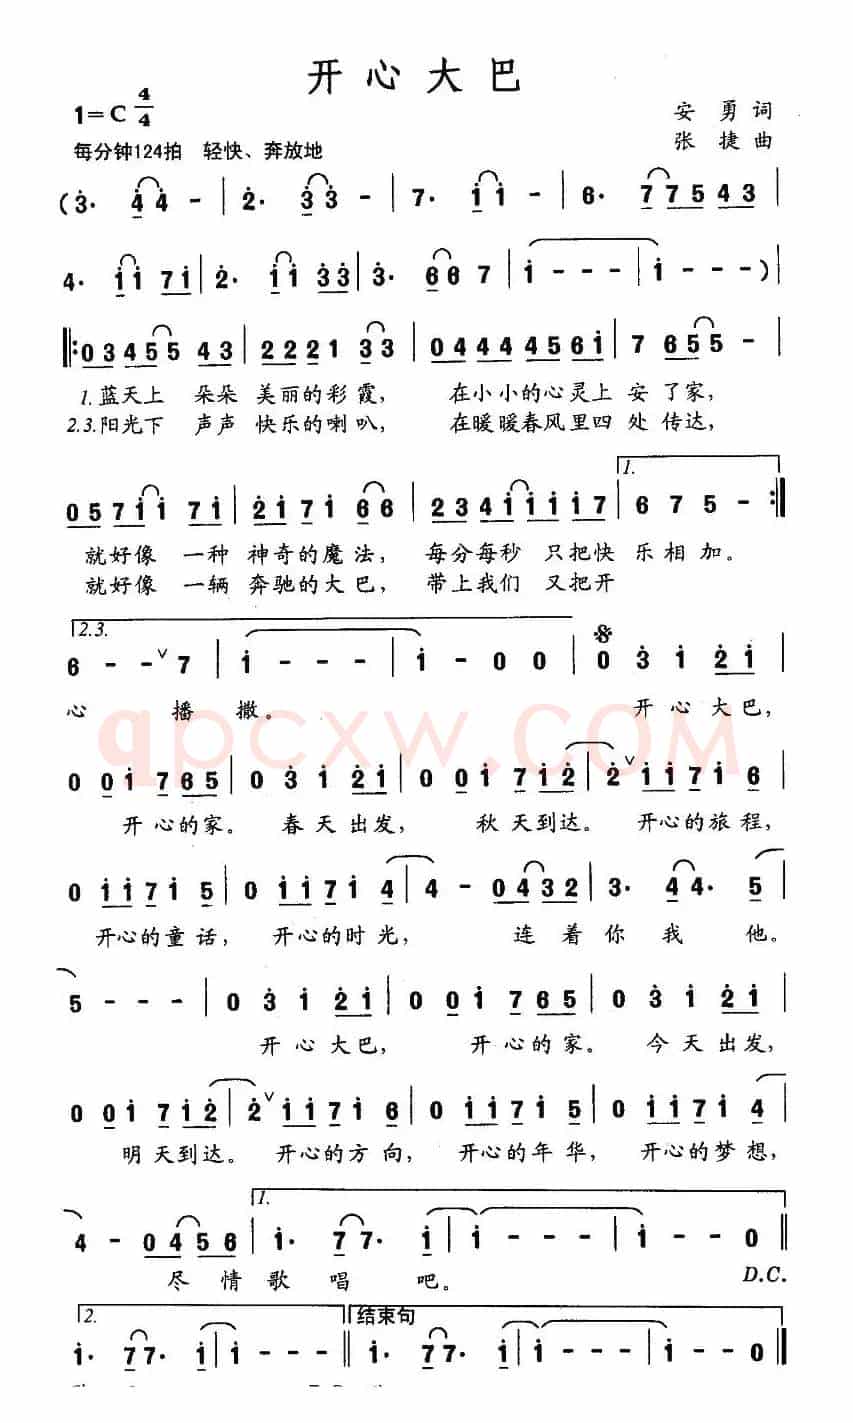 开心大巴
1=C 4/4
安勇词
张捷曲
每分钟124拍 轻快、奔放地
(3· 44 - | 2· 33 - | 7· 11 - | 6· 77543 |
4· 11 71 | 2· 11 33 | 3· 66 7 | 1 - - - | 1 - - - )|
‖:03455 43 | 2221 33 | 04444561 | 7 655 - |
1.蓝天上 朵朵 美丽的彩霞, 在小小的心灵上 安了家,
2.3.阳光下 声声 快乐的喇叭, 在暖暖春风里四处传达,
1.
05711 71 | 2171 66 | 23411117 | 6 7 5 - :‖
就好像 一种 神奇的魔法, 每分每秒 只把快 乐相加。
就好像 一辆 奔驰的大巴, 带上我们 又把开
2.3.
6 - - ∨ 7 | 1 - - - | 1 - 0 0 | 0 3 1 21 |
心 播 撒。 开心大巴,
qpcxw.COM
0 01 765 | 0 3 1 21 | 0 01 712 | 2 ∨ 1171 6 |
开心的家。 春天出发, 秋天到达。 开心的旅程,
0 1171 5 | 0 1171 4 | 4 - 0432 | 3· 44· 5 |
开心的童话, 开心的时光, 连着你我他。
5 - - - | 0 3 1 21 | 0 01 765 | 0 3 1 21 |
开心大巴, 开心的家。 今天出发,
0 01 712 | 2 ∨ 1171 6 | 0 1171 5 | 0 1171 4 |
明天到达。 开心的方向, 开心的年华, 开心的梦想,
1.
4 - 0456 | 1· 77· 1 | 1 - - - | 1 - - 0 ‖
尽情歌唱吧。 D.C.
2. 结束句
1· 77· 1 | 1 - - - ‖ 1· 77· 1 | 1 - - - | 1 - - 0 ‖